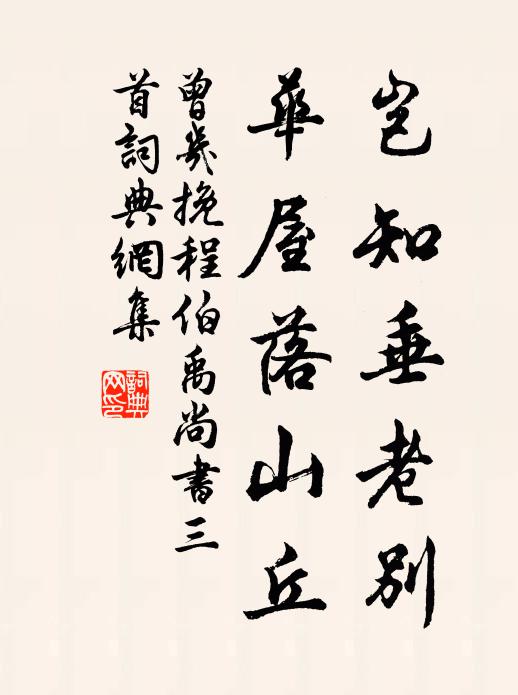 岂知垂老別
華屋落山丘
曾幾挽程伯禹尚書三
首詞典網集
詞典網印